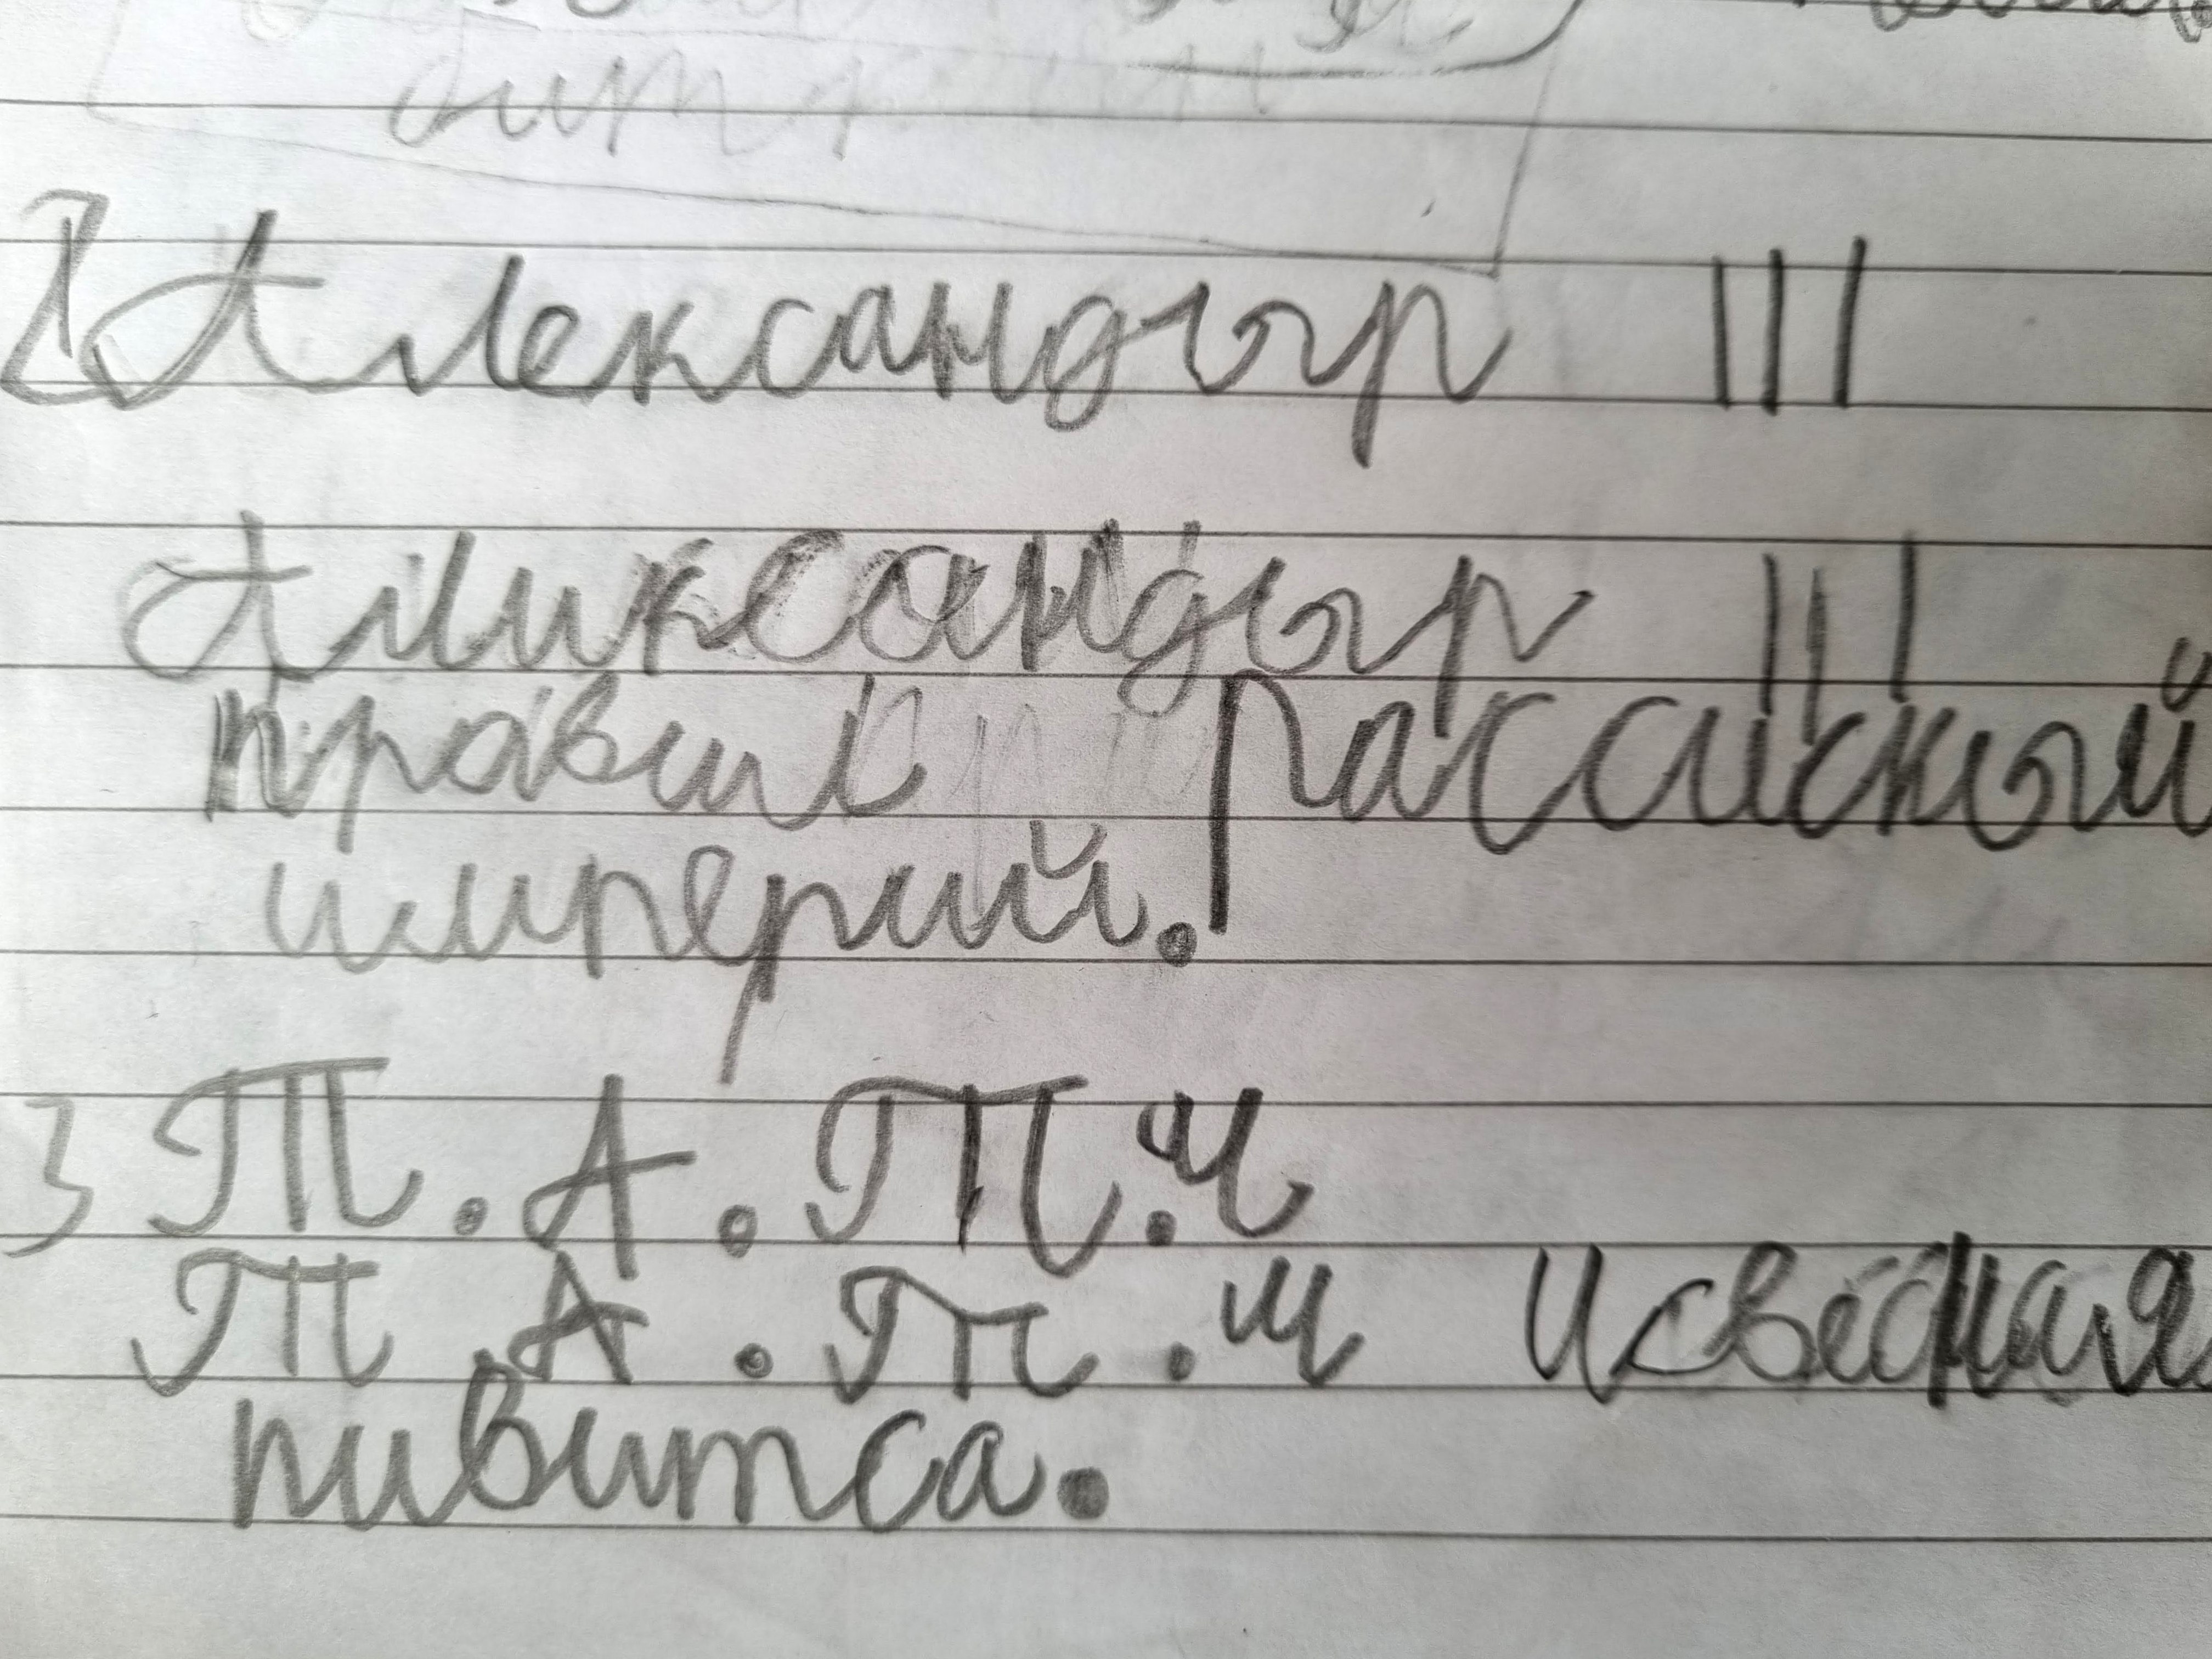 2 Александыр III
Аликсандыр III
правил Рассискый
империй.
3 Т.А.Т.У
Т.А.Т.У исвесная
пивитса.